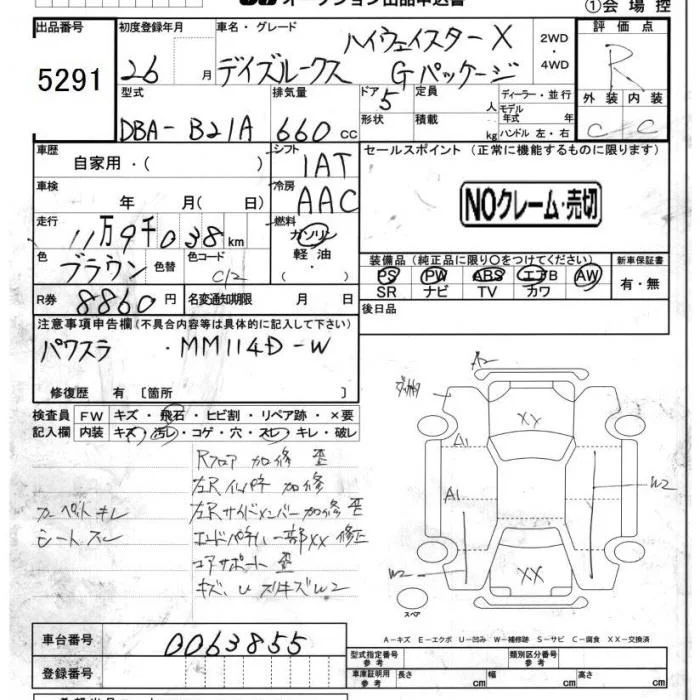 オークション出品申込書
①会場控
出品番号
5291
初度登録年月
26 月
車名・グレード
ハイウェイスターX
デイズルークス Gパッケージ
2WD
・
4WD
評価点
R
外装 内装
C C
型式
DBA-B21A
排気量
660 cc
ドア 5
形状
定員 人
積載 kg
ディーラー・並行
モデル
年式 年
ハンドル 左・右
車歴
自家用・( )
シフト
IAT
車検
年 月( 日)
冷房
AAC
走行
11万9千038km
燃料
ガソリン
・
軽油
・
( )
色
ブラウン
色替
色コード
R券
8860円
名変通知期限 月 日
セールスポイント (正常に機能するものに限ります)
NOクレーム・売切
装備品 (純正品に限り○をつけてください)
PS PW ABS エアB AW
SR ナビ TV カワ
新車保証書
有・無
後日品
注意事項申告欄(不具合内容等は具体的に記入して下さい)
パワスラ ・MM114D-W
修復歴 有 [箇所 ]
検査員 FW キズ・飛石・ヒビ割・リペア跡・×要
記入欄 内装 キズ・汚レ・コゲ・穴・スレ・キレ・破レ
Rフロア 加修 歪
左Rインパネ 加修
カーペットキレ
左Rサイドメンバー加修 歪
シートスレ
エンドパネル一部XX 修正
コアサポート 歪
キズ、U スリキズW2
A2
XY
A1
A1
W2
W2
XX
スペア
A-キズ E-エクボ U-凹み W-補修跡 S-サビ C-腐食 XX-交換済
車台番号
0063855
登録番号
型式指定番号
参考
類別区分番号
参考
車庫証明用
参考
長さ cm
幅 cm
高さ cm